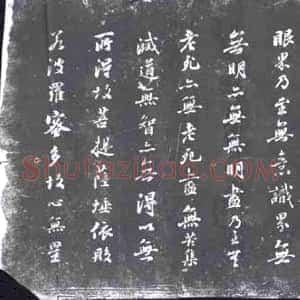 眼界乃至無意識界無
無明亦無無明盡乃至
老死亦無老死盡無苦集
滅道無智亦無得以無
所得故菩提薩埵依般
若波羅蜜多故心無罣